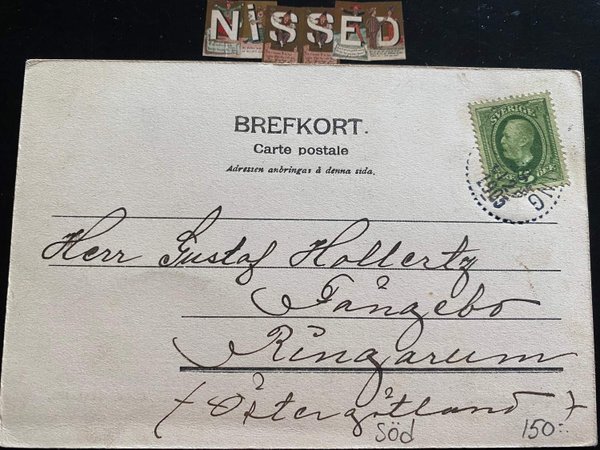 NISSED
BREFKORT.
Carte postale
Adressen anbringas å denna sida.
SVERIGE
1905
Herr Gustaf Hollertz
Fångebo
Ringarum
(Östergötland)
Söd
150:-